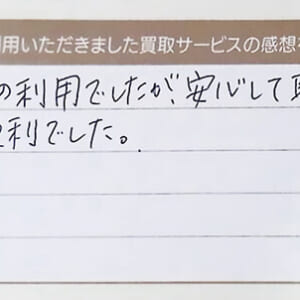 用いただきました買取サービスの感想
の利用でしたが、安心して
利でした。